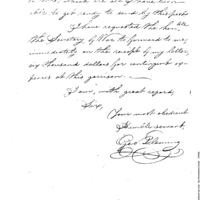 ble to get ready to send by this post.
I have requested the hon.
the Secretary of War to forward to me,
immediately on the receipt of my letter,
six thousand dollars for contingent ex-
penses at this garrison.
I am, with great regard,
Sir,
Your most obedient
Humble servant,
Geo Fleming